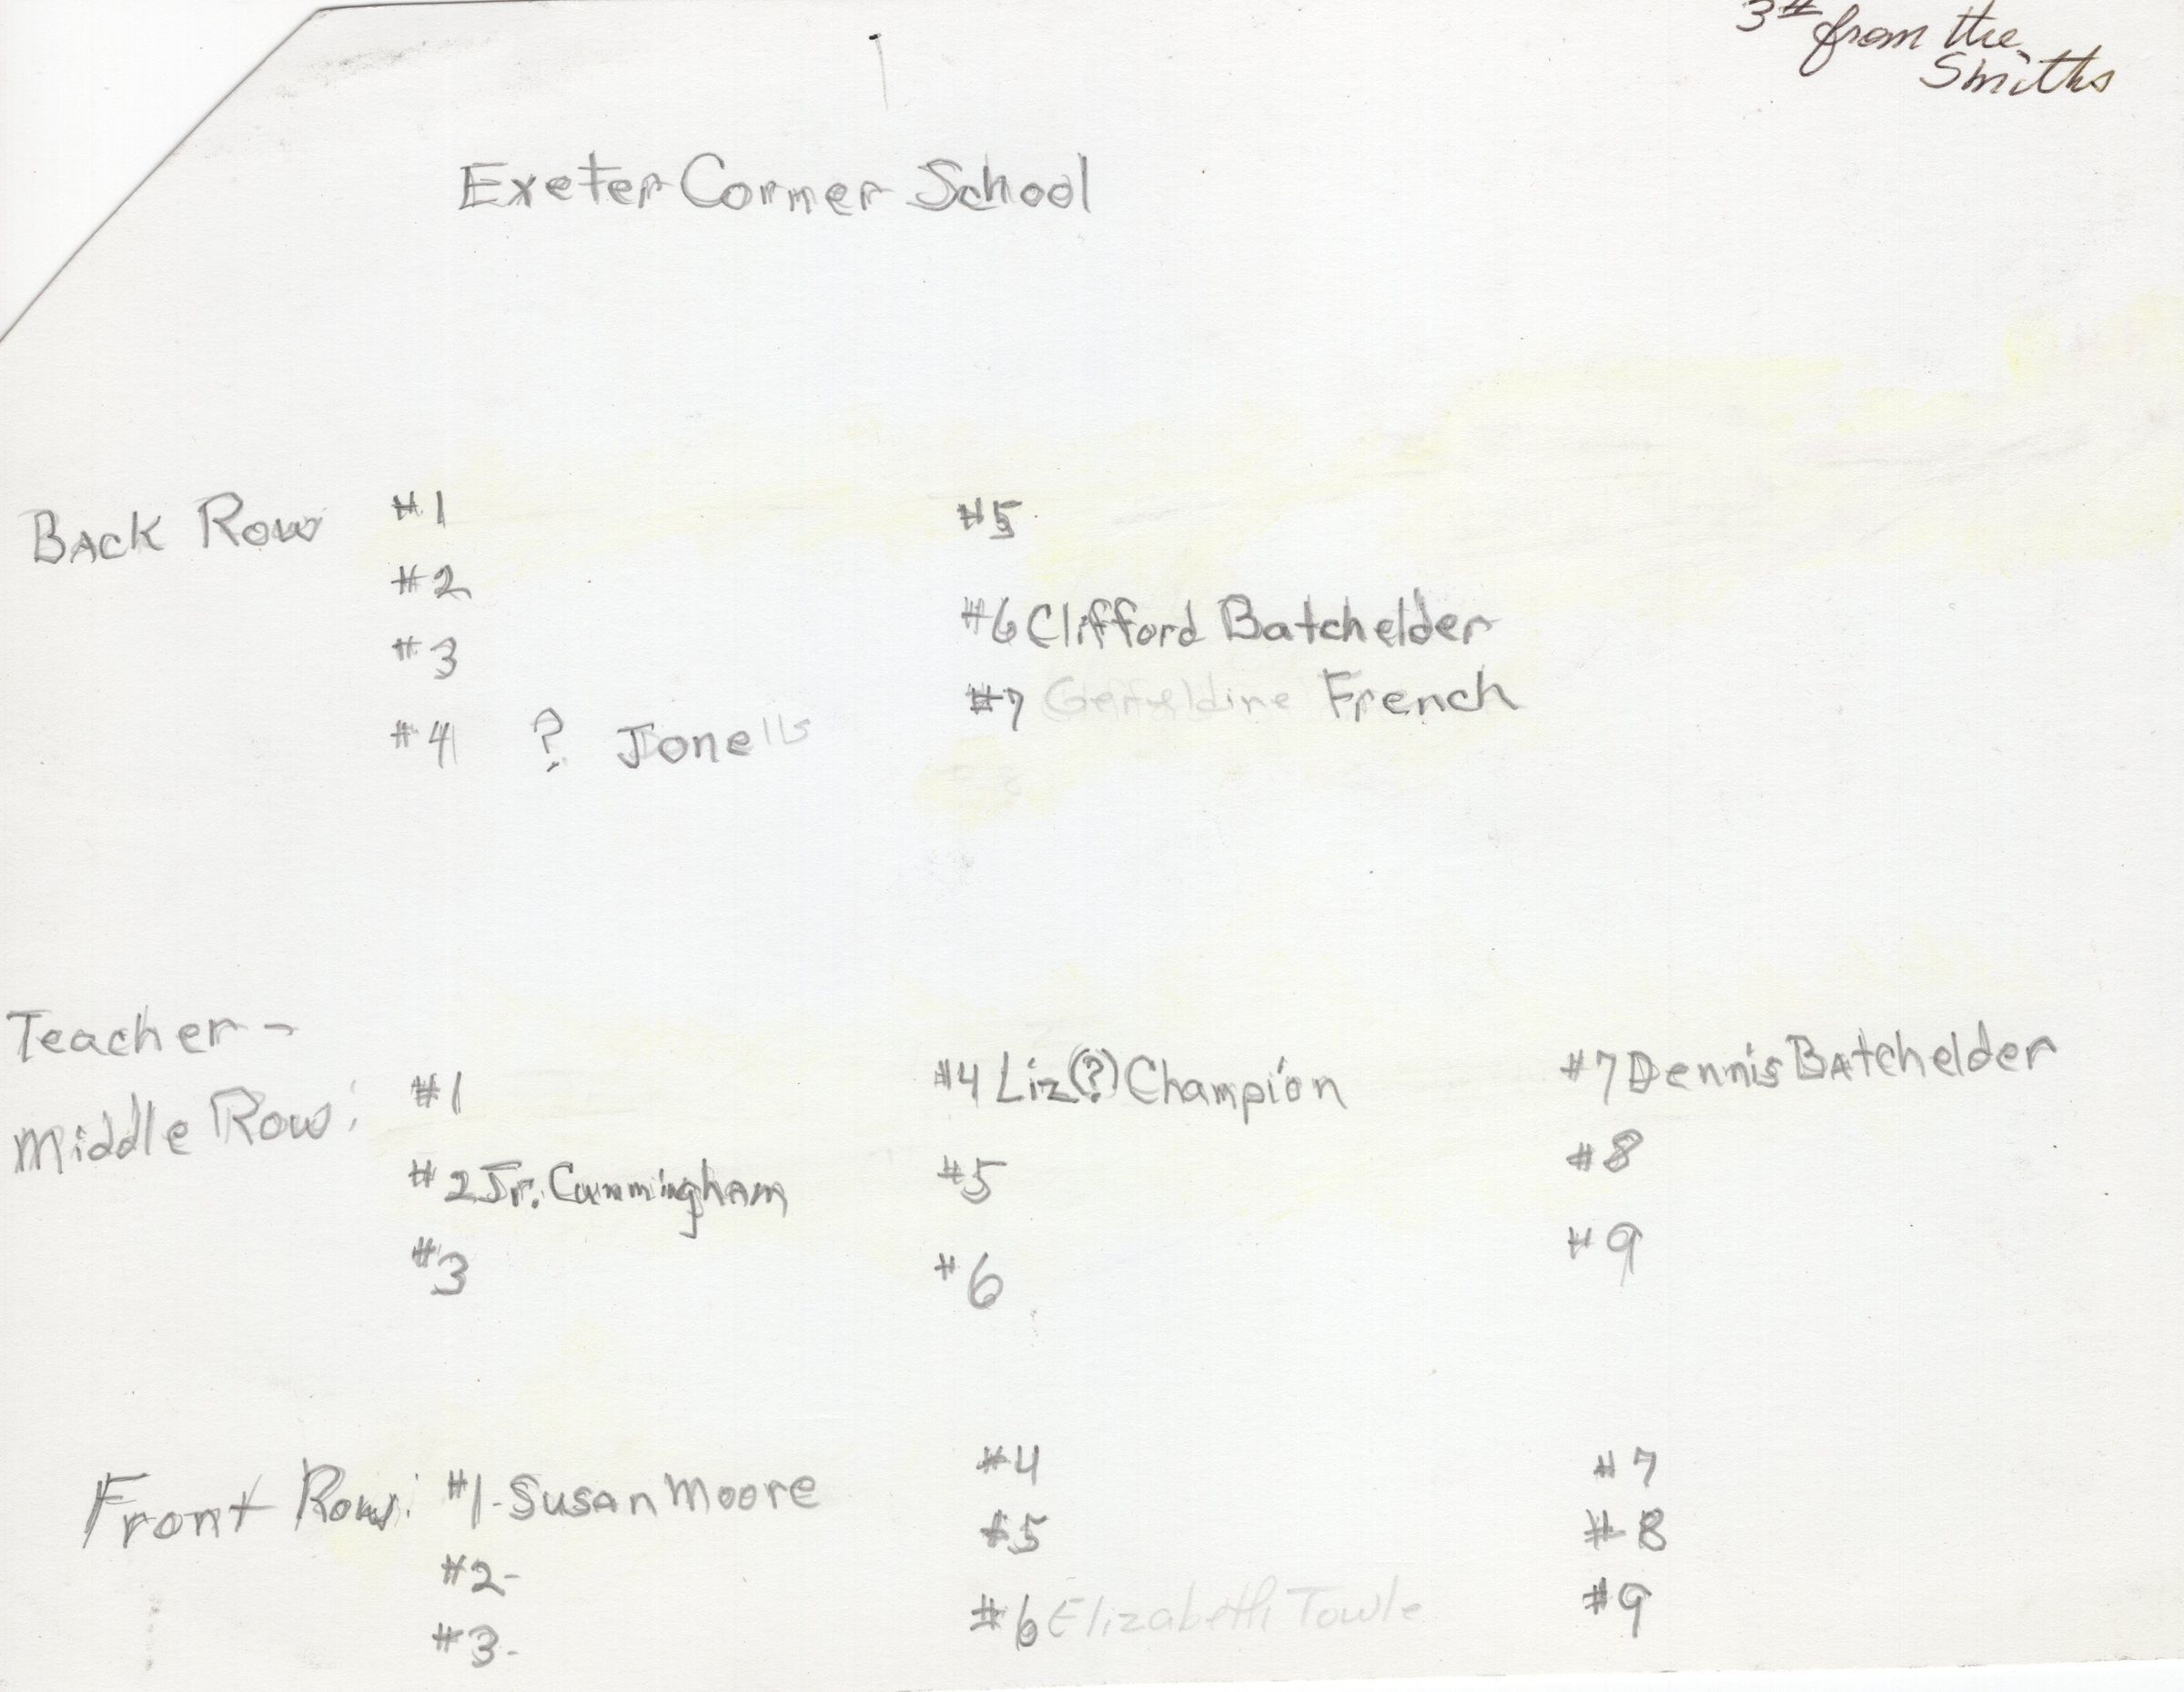 3# from the
Smiths
Exeter Corner School
Back Row
#1
#2
#3
#4 ? Jonells
#5
#6 Clifford Batchelder
#7 French
Teacher -
Middle Row:
#1
#2 Jr. Cunningham
#3
#4 Liz(?) Champion
#5
#6
#7 Dennis Batchelder
#8
#9
Front Row:
#1- Susan Moore
#2-
#3-
#4
#5
#6 Elizabeth Towle
#7
#8
#9